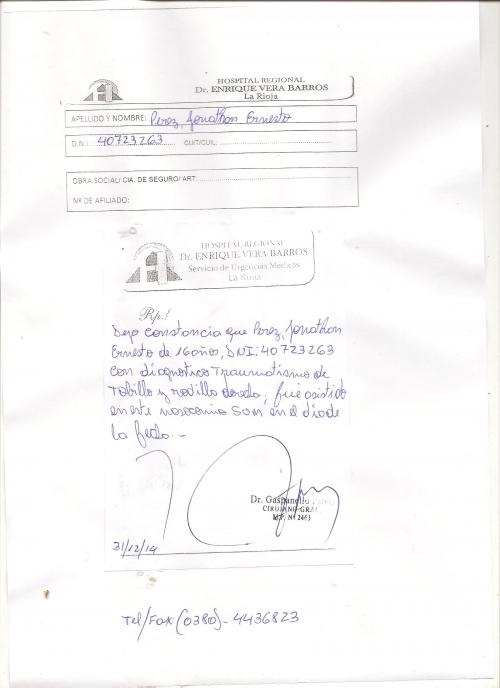 HOSPITAL REGIONAL
Dr. ENRIQUE VERA BARROS
La Rioja
APELLIDO Y NOMBRE: Perez, Jonathon Ernesto
D.N.I.: 40723263 CUIT/CUIL:
OBRA SOCIAL/ CIA. DE SEGURO/ ART:
Nº DE AFILIADO:
HOSPITAL REGIONAL
Dr. ENRIQUE VERA BARROS
Servicio de Urgencias Medicas
La Rioja
Rp.!
Dejo constancia que Perez, Jonathon
Ernesto de 16 años, DNI: 40723263
con diagnostico Traumatismo de
Tobillo y rodilla, fue asistido
en este nosocomio en el dia de
la fecha.-
Dr. Gaspanello
CIRUJANO GRAL.
M.P. Nº 2463
31/12/14
Tel/Fax (0380)- 4436823